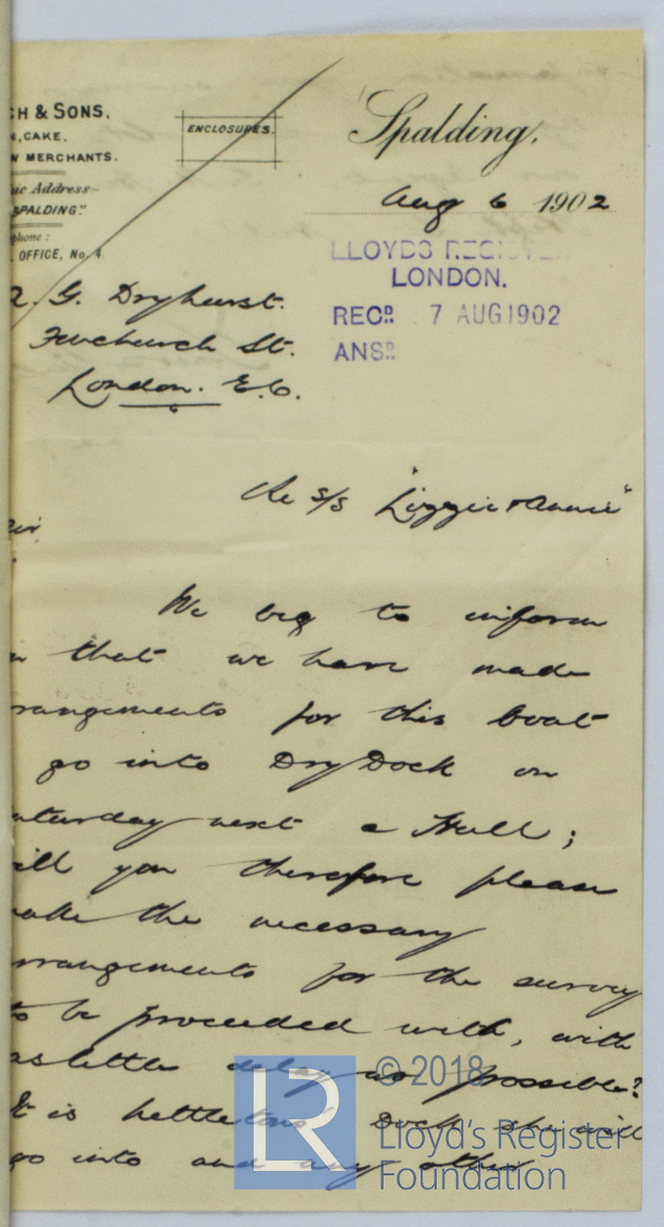 CH & SONS,
N, CAKE,
W MERCHANTS.
ENCLOSURES.
Spalding,
ic Address—
SPALDING."
phone:
OFFICE, No. 4
Aug 6 1902
LLOYDS REGISTER
LONDON.
RECD. 7 AUG 1902
ANSD.
R. G. Dryhurst.
Fenchurch St.
London. E.C.
Re S/S "Lizzie & Annie"
Sir
We beg to inform
u that we have made
rrangements for this boat
go into Dry Dock on
aturday next a Hull;
ill you therefore please
ake the necessary
rrangements for the survey
to be proceeded with, with
as little delay as possible?
It is Dock she will
go into and any other
LR
© 2018
Lloyd's Register
Foundation